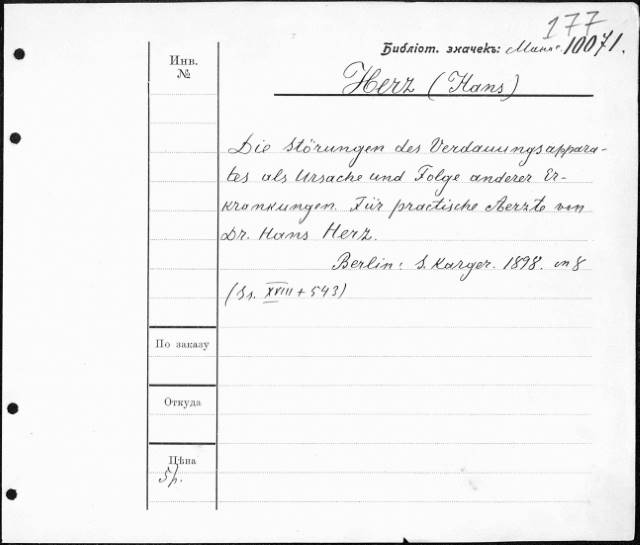 177
Библіот. значекъ: 10071.
Инв.
№
Herz (Hans)
Die Störungen des Verdauungsappara-
tes als Ursache und Folge anderer Er-
krankungen. Für practische Aerzte von
Dr. Hans Herz.
Berlin: S. Karger. 1898. in 8
(Ss. XVIII + 543)
По заказу
Откуда
Цѣна
5р.